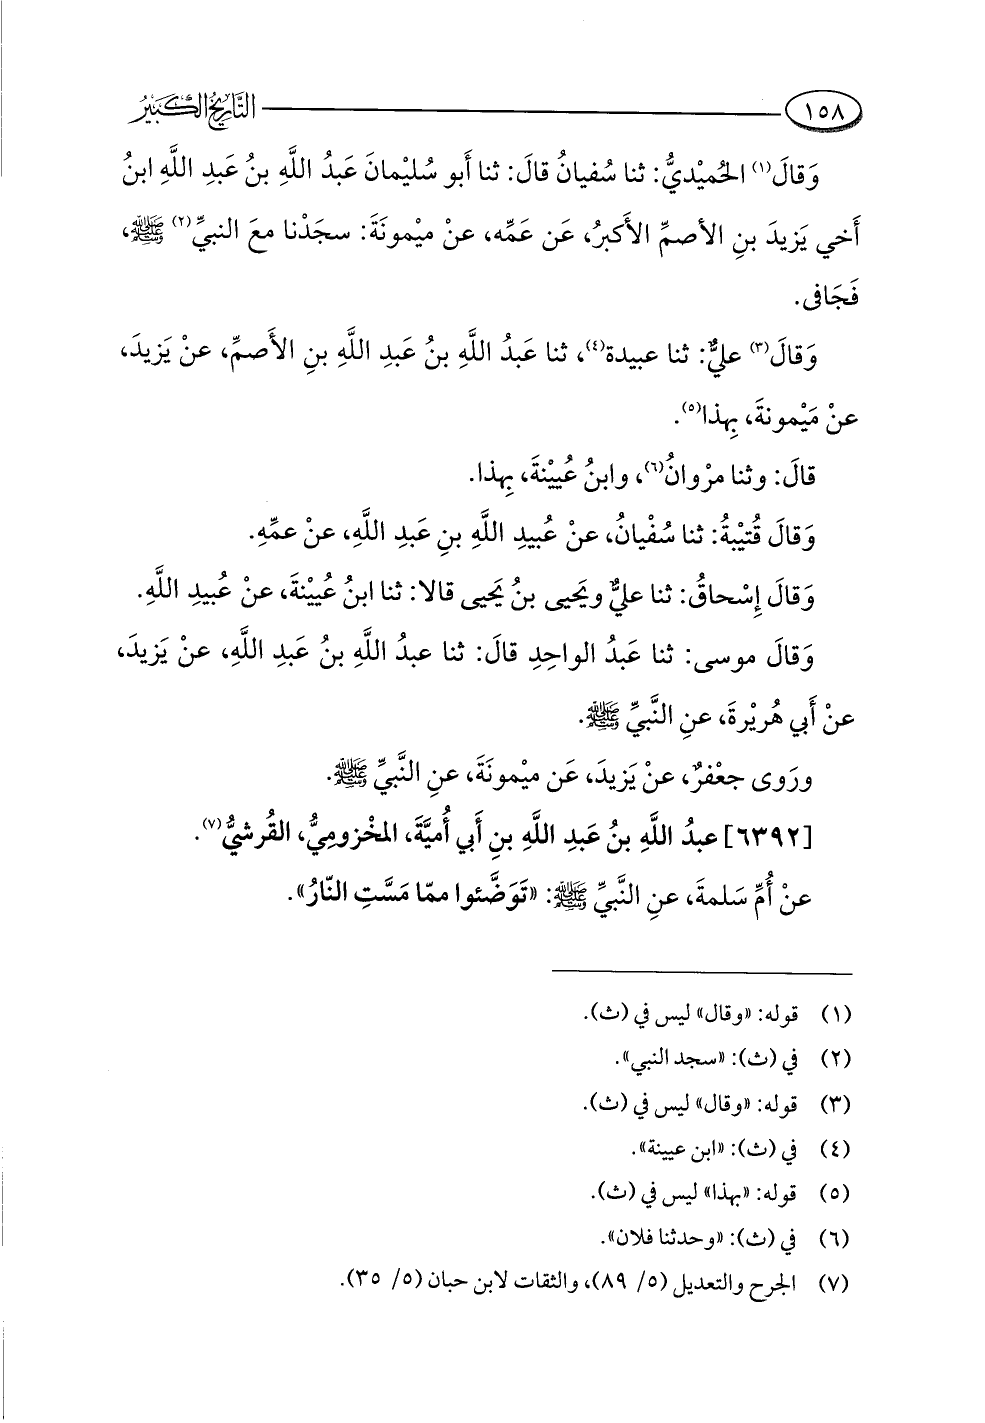 ١٥٨ التَّارِيخُ الكَبِيْرُ
وَقالَ(١) الحُميْديُّ: ثنا سُفيانُ قالَ: ثنا أَبو سُليْمانَ عَبدُ اللَّهِ بنُ عَبدِ اللَّهِ ابنُ
أَخي يَزيدَ بنِ الأصمِّ الأَكبرُ، عَن عَمِّه، عنْ ميْمونَةَ: سجَدْنا معَ النبيِّ(٢) ﷺ،
فَجَافى.
وَقالَ(٣) عليٌّ: ثنا عبيدة(٤)، ثنا عَبدُ اللَّهِ بنُ عَبدِ اللَّهِ بنِ الأَصمِّ، عنْ يَزيدَ،
عنْ مَيْمونةَ، بِهذا(٥).
قالَ: وثنا مرْوانُ(٦)، وابنُ عُيينْةَ، بِهذا.
وَقالَ قُتيْبةُ: ثنا سُفْيانُ، عنْ عُبيدِ اللَّهِ بنِ عَبدِ اللَّهِ، عنْ عمِّهِ.
وَقالَ إِسْحاقُ: ثنا عليٌّ ويَحيى بنُ يَحيى قالا: ثنا ابنُ عُييْنةَ، عنْ عُبيدِ اللَّهِ.
وَقالَ موسى: ثنا عَبدُ الواحِدِ قالَ: ثنا عبدُ اللَّهِ بنُ عَبدِ اللَّهِ، عنْ يَزيدَ،
عنْ أَبي هُريْرةَ، عنِ النَّبيِّ ﷺ.
ورَوى جعْفرٌ، عنْ يَزيدَ، عَن ميْمونَةَ، عنِ النَّبيِّ ﷺ.
[٦٣٩٢] عبدُ اللَّهِ بنُ عَبدِ اللَّهِ بنِ أَبي أُميَّةَ، المخْزوميُّ، القُرشيُّ(٧).
عنْ أُمِّ سَلمةَ، عنِ النَّبيِّ ﷺ: «تَوَضَّئوا ممّا مَسَّتِ النّارُ».
(١) قوله: «وقال» ليس في (ث).
(٢) في (ث): «سجد النبي».
(٣) قوله: «وقال» ليس في (ث).
(٤) في (ث): «ابن عيينة».
(٥) قوله: «بهذا» ليس في (ث).
(٦) في (ث): «وحدثنا فلان».
(٧) الجرح والتعديل (٥/ ٨٩)، والثقات لابن حبان (٥/ ٣٥).